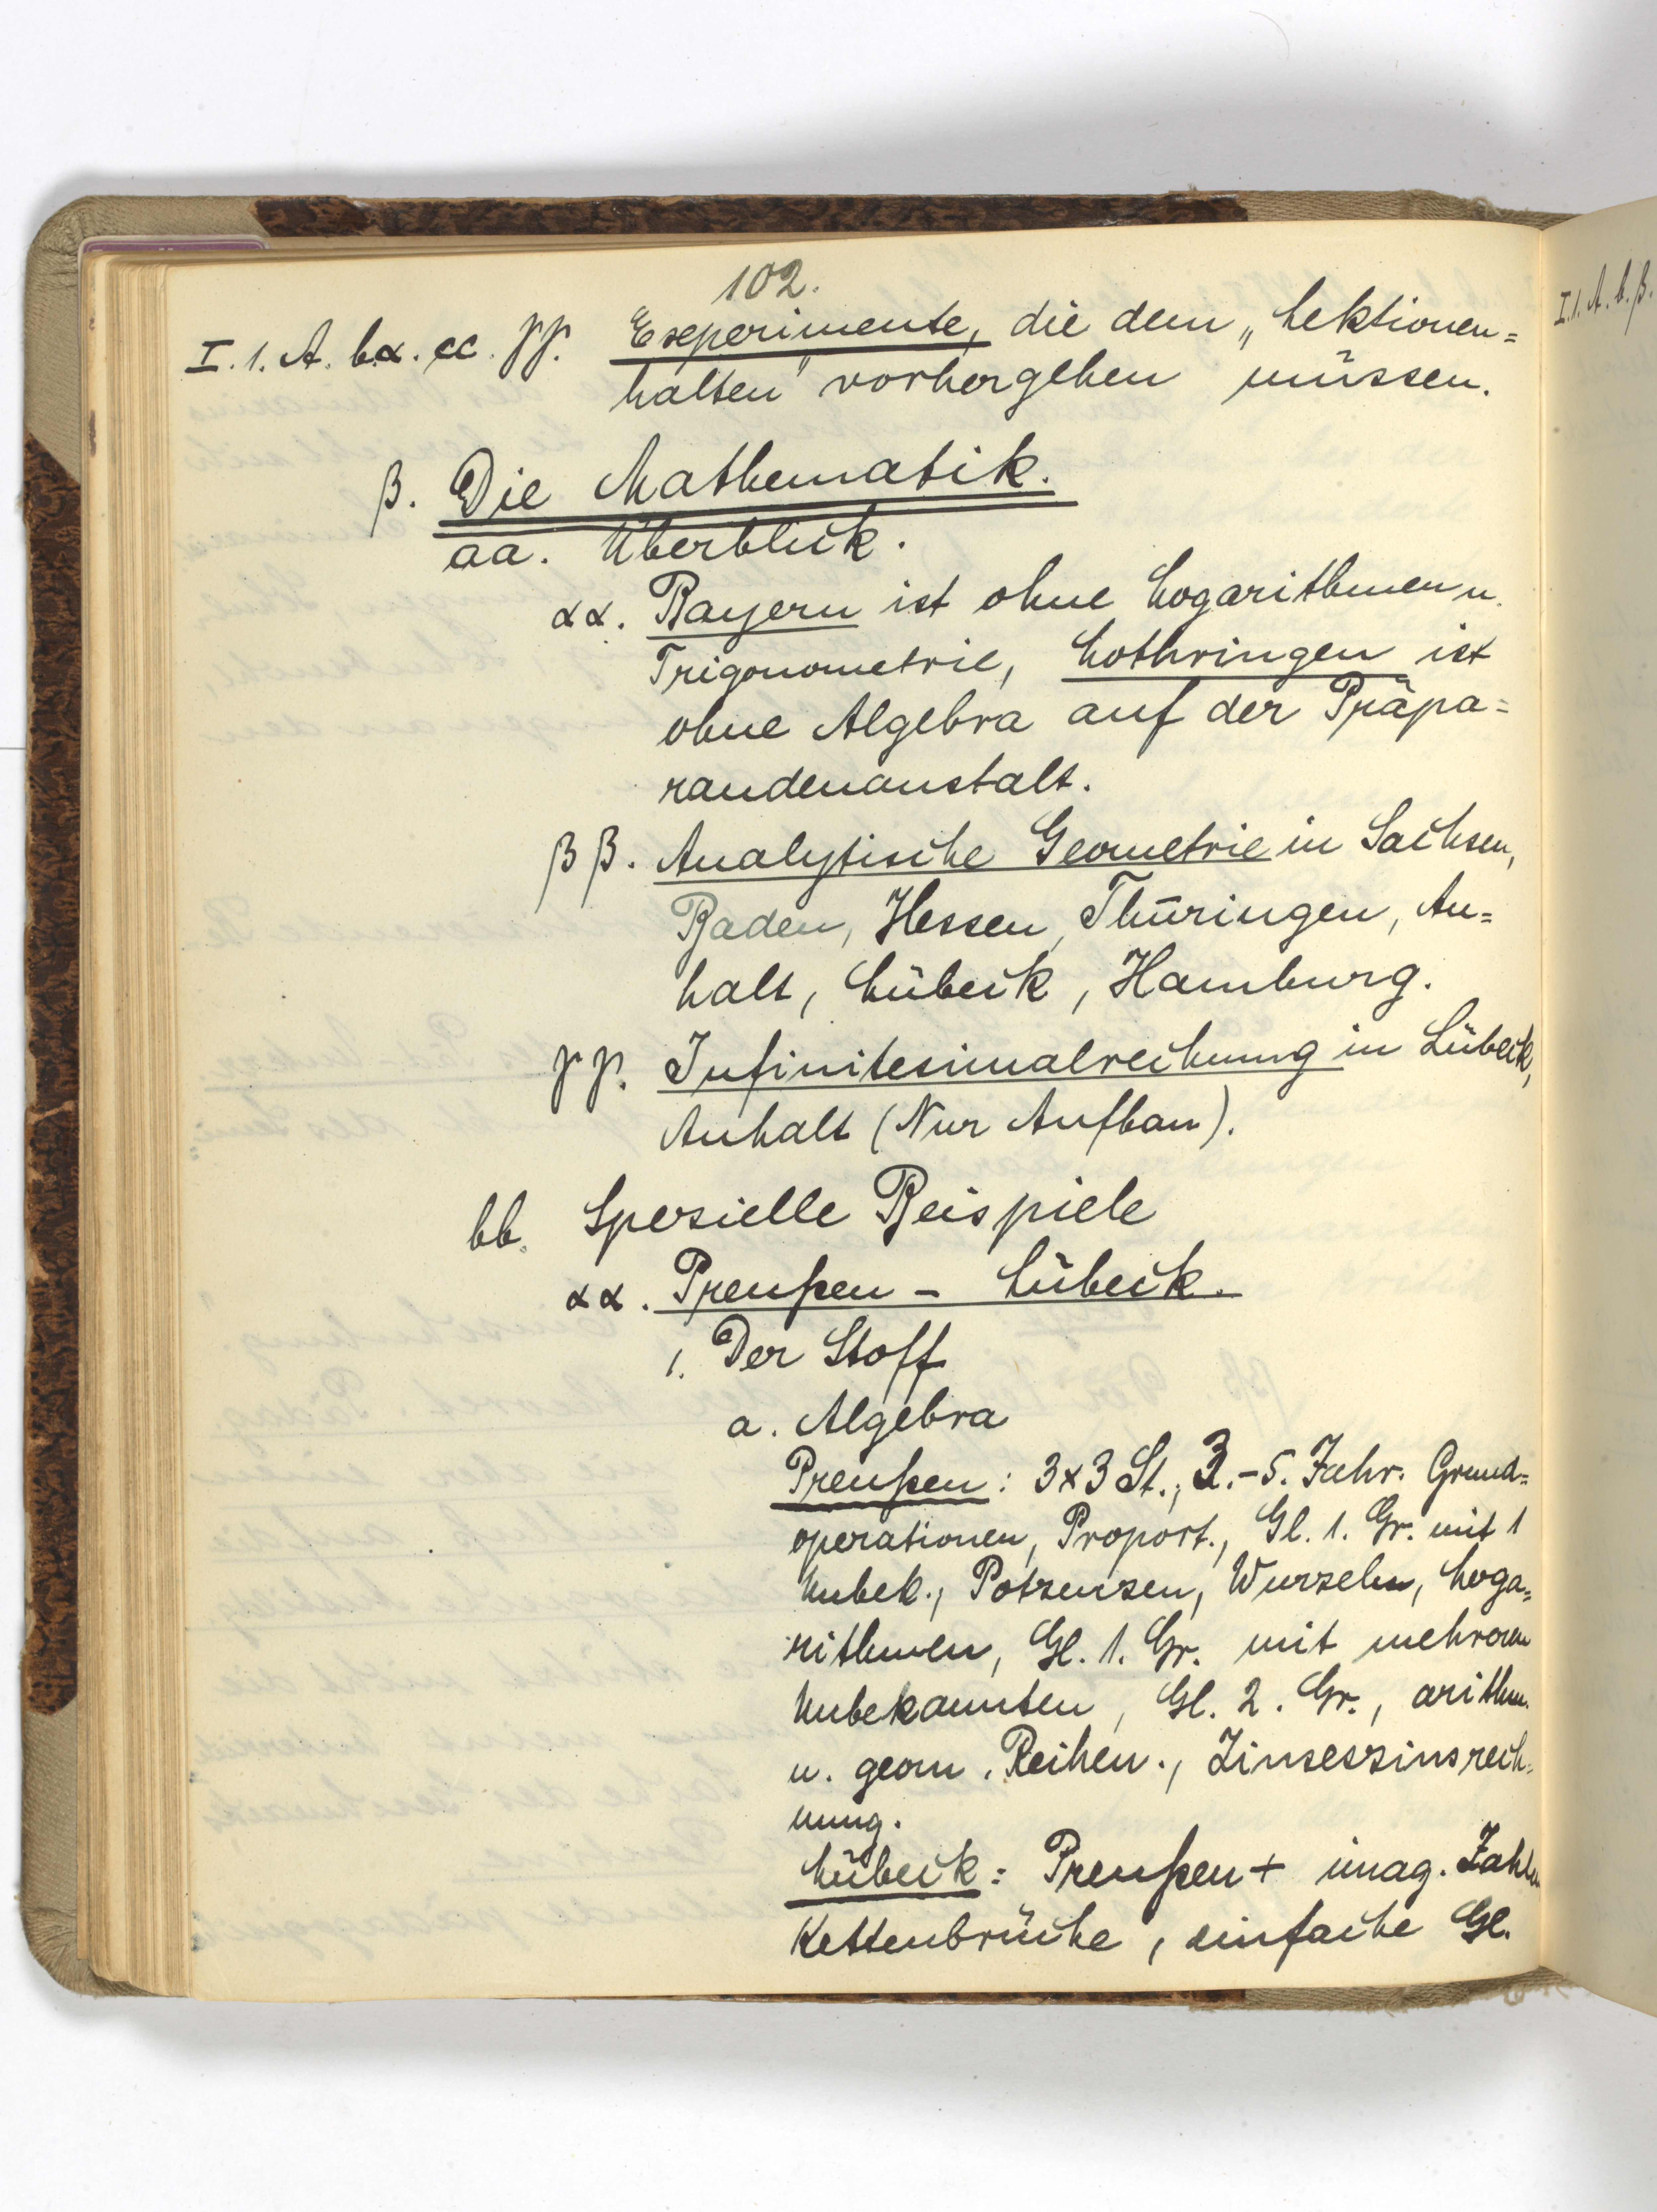 102.
I. 1. A. b.α. cc. γγ. Experimente, die dem „Lektionen=
halten" vorhergehen müssen.
β. Die Mathematik.
aa. Überblick.
αα. Bayern ist ohne Logarithmen u.
Trigonometrie, Lothringen ist
ohne Algebra auf der Präpa=
randenanstalt.
ββ. Analytische Geometrie in Sachsen,
Baden, Hessen, Thüringen, An=
halt, Lübeck, Hamburg.
γγ. Infinitesimalrechnung in Lübeck,
Anhalt (Nur Aufbau).
bb. Spezielle Beispiele
αα. Preußen – Lübeck.
1. Der Stoff
a. Algebra
Preußen: 3x3 St., 3.–5. Jahr. Grund=
operationen, Proport., Gl. 1. Gr. mit 1
Unbek., Potzenzen, Wurzeln, Loga=
rithmen, Gl. 1. Gr. mit mehreren
Unbekannten, Gl. 2. Gr., arithm.
u. geom. Reihen., Zinseszinsrech=
nung.
Lübeck: Preußen + imag. Zahlen
Kettenbrüche, einfache Gl.
I. 1. A. b. β.